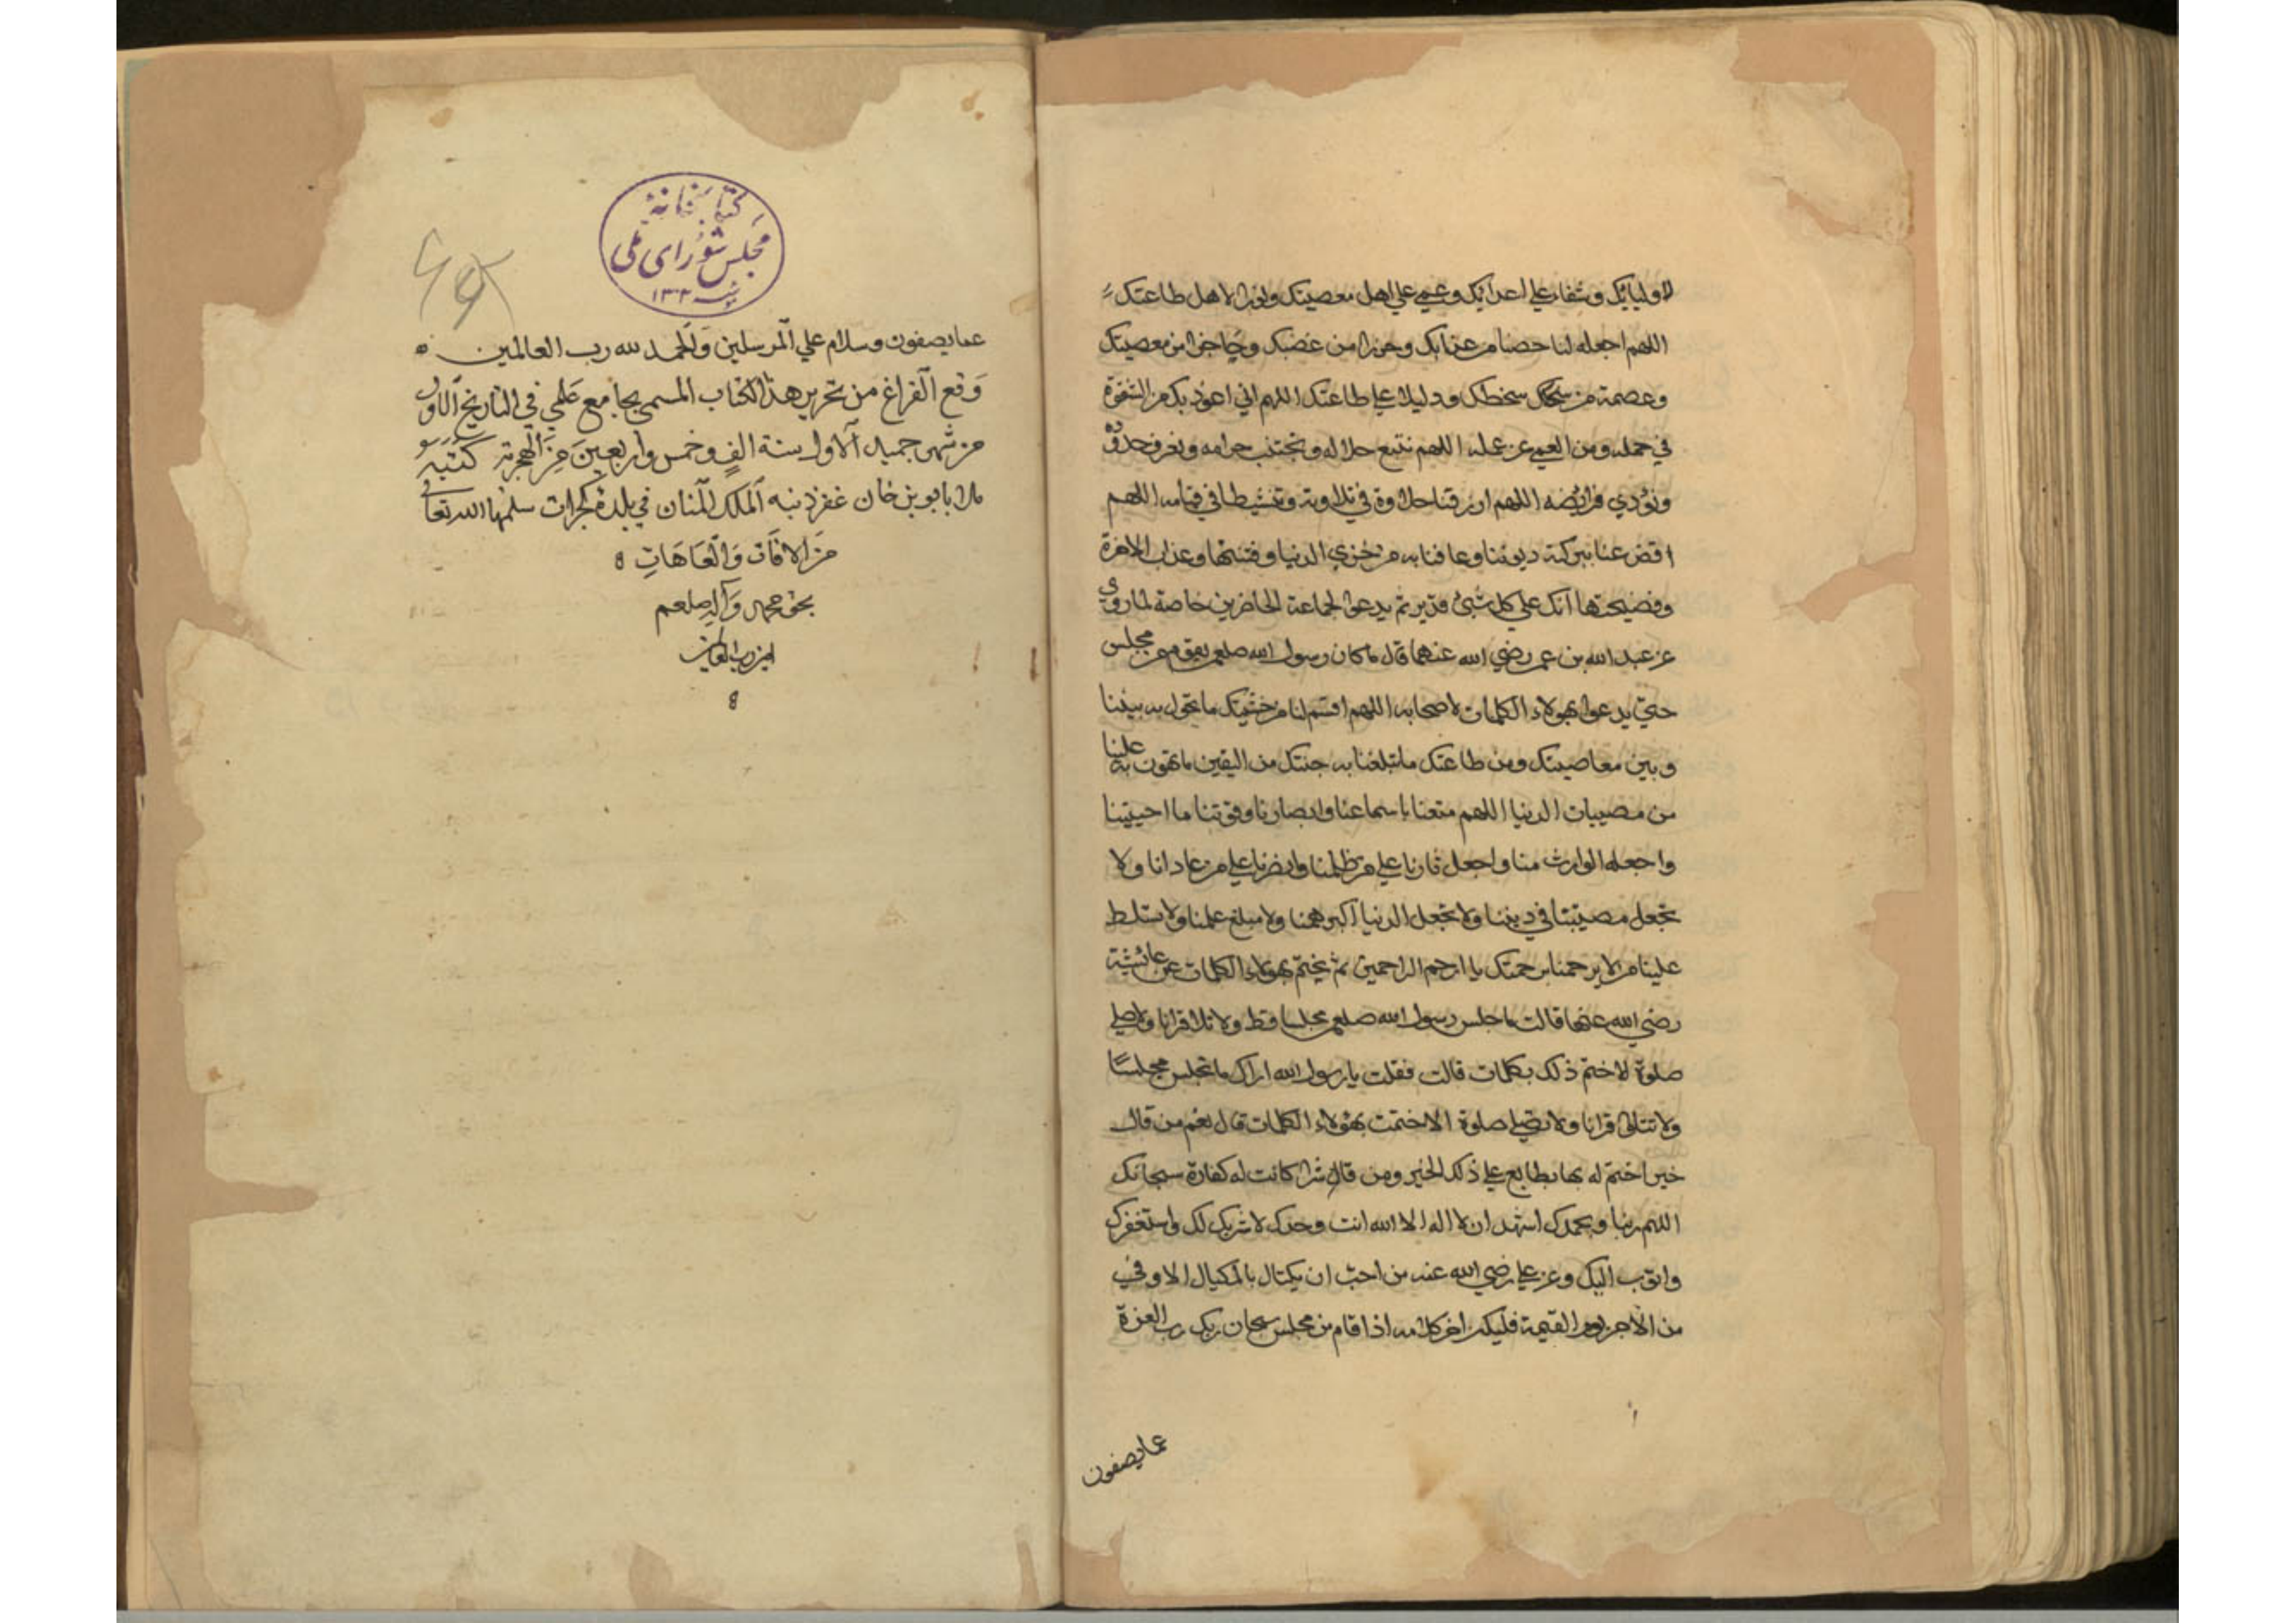 لاوليائك وشفاء علي اعدائك وغمي علي اهل معصيتك ونورا لاهل طاعتك
اللهم اجعله لنا حصنا من عذابك وحرزا من غضبك وحاجزا من معصيتك
وعصمة من سخطك ودليلا علي طاعتك اللهم اني اعوذ بك من الشقوة
في حمله ومن العمي عن عمله اللهم نتبع حلاله ونجتنب حرامه ونعرف حدوده
ونؤدي فرائضه اللهم ارزقنا حلاوة في تلاوته وتنشيطا في قيامه اللهم
اقض عنا ببركته ديوننا وعافنا به من خزي الدنيا وفتنتها وعذاب الاخرة
وفضيحتها انك علي كل شئ قدير ثم يدعوا لجماعة الحاضرين خاصة لما روي
عن عبد الله بن عمر رضي الله عنهما قال ما كان رسول الله صلعم يقوم من مجلس
حتي يدعوا بهولاء الكلمات لاصحابه اللهم اقسم لنا من خشيتك ما تحول به بيننا
وبين معاصيتك ومن طاعتك ما تبلغنا به جنتك من اليقين ما تهون به علينا
من مصيبات الدنيا اللهم متعنا باسماعنا وابصارنا وقوتنا ما احييتنا
واجعله الوارث منا واجعل ثارنا علي من ظلمنا وانصرنا علي من عادانا ولا
تجعل مصيبتنا في ديننا ولا تجعل الدنيا اكبر همنا ولا مبلغ علمنا ولا تسلط
علينا من لا يرحمنا برحمتك يا ارحم الراحمين ثم يختم بهولاء الكلمات عن عائشة
رضي الله عنها قالت ما جلس رسول الله صلعم مجلسا قط ولا تلا قرانا ولا صلي
صلوة لا ختم ذلك بكلمات قالت فقلت يا رسول الله اراك ما تجلس مجلسا
ولا تتلوا قرانا ولا تصلي صلوة الا ختمت بهولاء الكلمات قال نعم من قال
خيرا ختم له بها بطابع علي ذلك الخير ومن قال شرا كانت له كفارة سبحانك
اللهم ربنا وبحمدك اشهد ان لا اله الا الله انت وحدك لا شريك لك واستغفرك
واتوب اليك وعن علي رضي الله عنه من احب ان يكتال بالمكيال الاوفي
من الاجر يوم القيمة فليكن اخر كلامه اذا قام من مجلس سبحان ربك رب العزة
عما يصفون
كتابخانهٔ
مجلس شورای ملی
عما يصفون وسلام علي المرسلين والحمد لله رب العالمين
وقع الفراغ من تحرير هذا الكتاب المسمي بجامع علمي في التاريخ الاول
من شهر جميدي الاول سنة الف وخمس واربعين من الهجرة كتبه
ملا بابو بن خان غفر ذنبه الملك المنان في بلدة كجرات سلمها الله تعالي
من الافات والعاهات
بحق محمد واله صلعم
امين رب العالمين